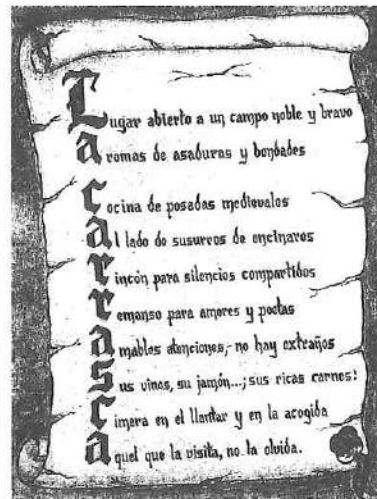 Lugar abierto a un campo noble y bravo
aromas de asaduras y bondades
cocina de posadas medievales
al lado de susurros de encinares
rincón para silencios compartidos
remanso para amores y poetas
amables atenciones,- no hay extraños
sus vinos, su jamón...; sus ricas carnes!
cimera en el llantar y en la acogida
aquel que la visita, no la olvida.